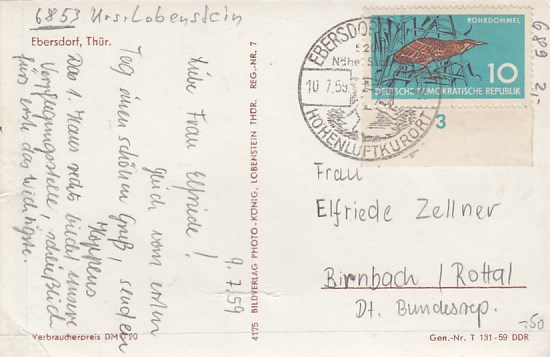 6853 Krs. Lobenstein
Ebersdorf, Thür.
9.7.59
Liebe Frau Elfriede!
Gleich vom ersten
Tag einen schönen Gruß, senden
Hoppens
Das 1. Haus rechts bildet unsere
Verpflegungsstelle,
fürs erste das wichtigste.
Verbraucherpreis DM 0,20
4175 BILDVERLAG PHOTO-KÖNIG, LOBENSTEIN THÜR. REG.-NR. 7
EBERSDORF
10.7.59
HÖHENLUFTKURORT
ROHRDOMMEL
10
DEUTSCHE DEMOKRATISCHE REPUBLIK
3
6899 2,-
Frau
Elfriede Zellner
Birnbach / Rottal
Dt. Bundesrep.
-.50
Gen.-Nr. T 131-59 DDR